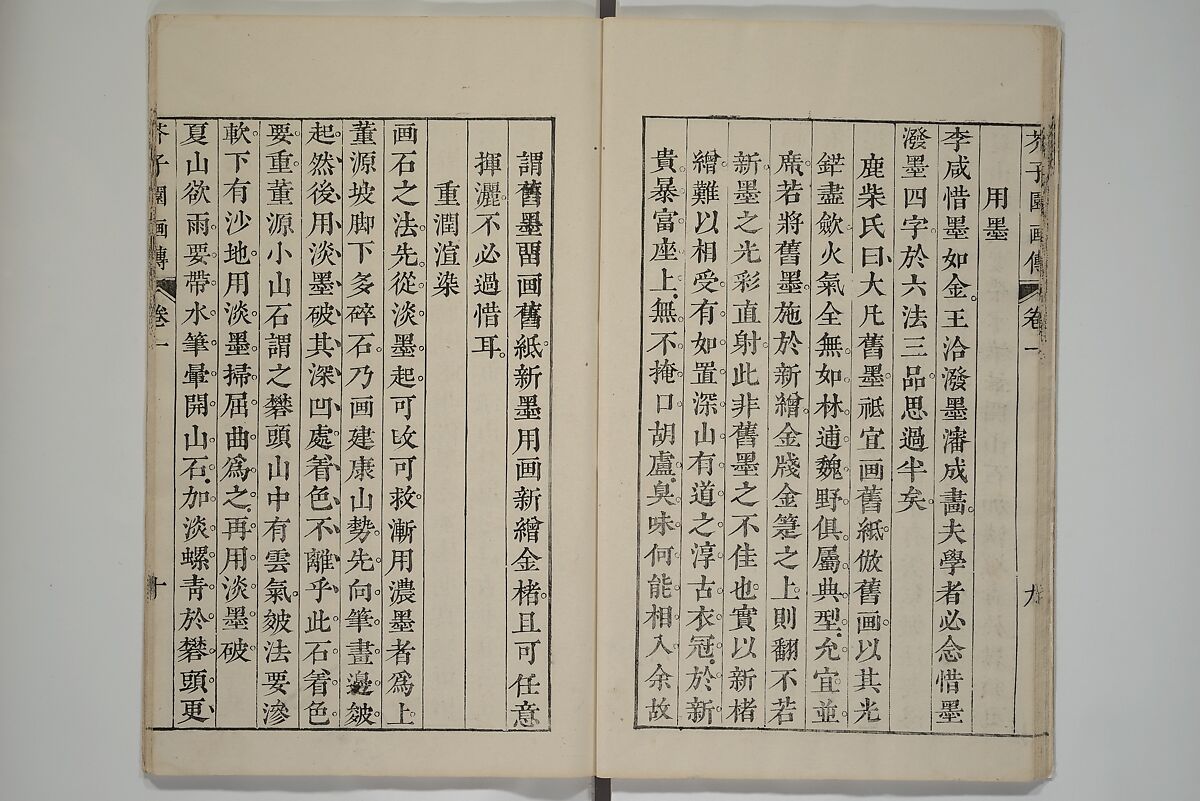 芥子園画傳 卷一 九
用墨
李咸惜墨如金。王洽潑墨瀋成畵。夫學者必念惜墨
潑墨四字於六法三品。思過半矣。
鹿柴氏曰、大凡舊墨。祗宜画舊紙。倣舊画。以其光
鋩盡歛。火氣全無。如林逋魏野。俱屬典型。允宜並
席。若將舊墨。施於新繒。金牋金箑之上。則翻不若
新墨之光彩直射。此非舊墨之不佳也。實以新楮
繒難以相受。有如置深山有道之淳古衣冠。於新
貴暴富座上。無不掩口胡盧。臭味何能相入。余故
謂舊墨留画舊紙。新墨用画新繒金楮。且可任意
揮灑。不必過惜耳。
重潤渲染
画石之法。先從淡墨起。可改可救。漸用濃墨者爲上。
董源坡脚下多碎石。乃画建康山勢。先向筆畫邊皴
起。然後用淡墨破其深凹處。着色不離乎此。石着色
要重。董源小山石。謂之礬頭。山中有雲氣。皴法要滲
軟。下有沙地。用淡墨掃。屈曲爲之。再用淡墨破
夏山欲雨。要帶水筆暈開。山石。加淡螺青於礬頭。更
芥子園画傳 卷一 十